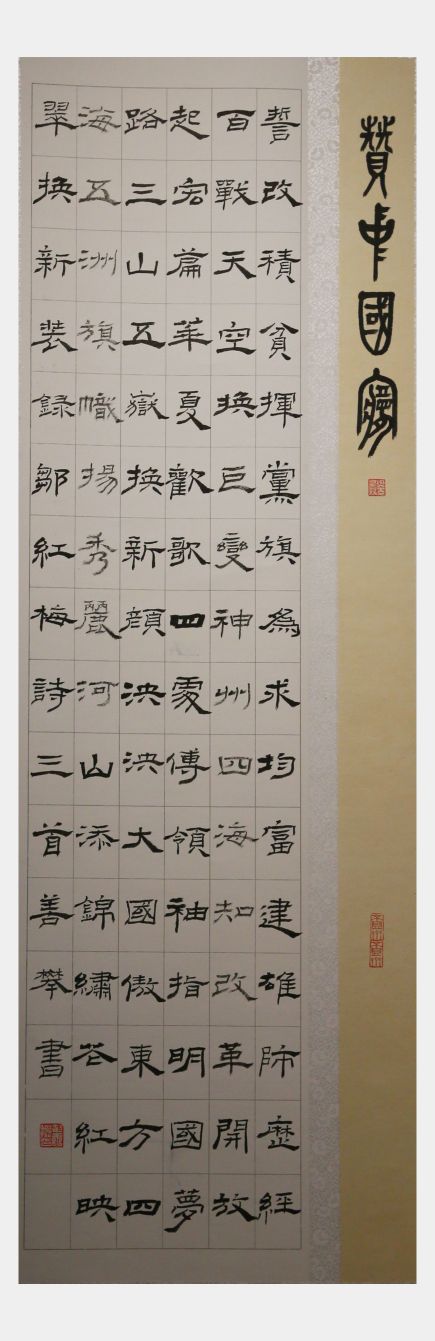 贊中國夢
誓改積貧揮黨旗為求均富建雄師歷經
百戰天空換巨變神州四海知改革開放
起宏篇華夏歡歌四處傳領袖指明國夢
路三山五嶽換新顔泱泱大國傲東方四
海五洲旗幟揚秀麗河山添錦繡花紅映
翠換新裝錄鄒紅梅詩三首善攀書